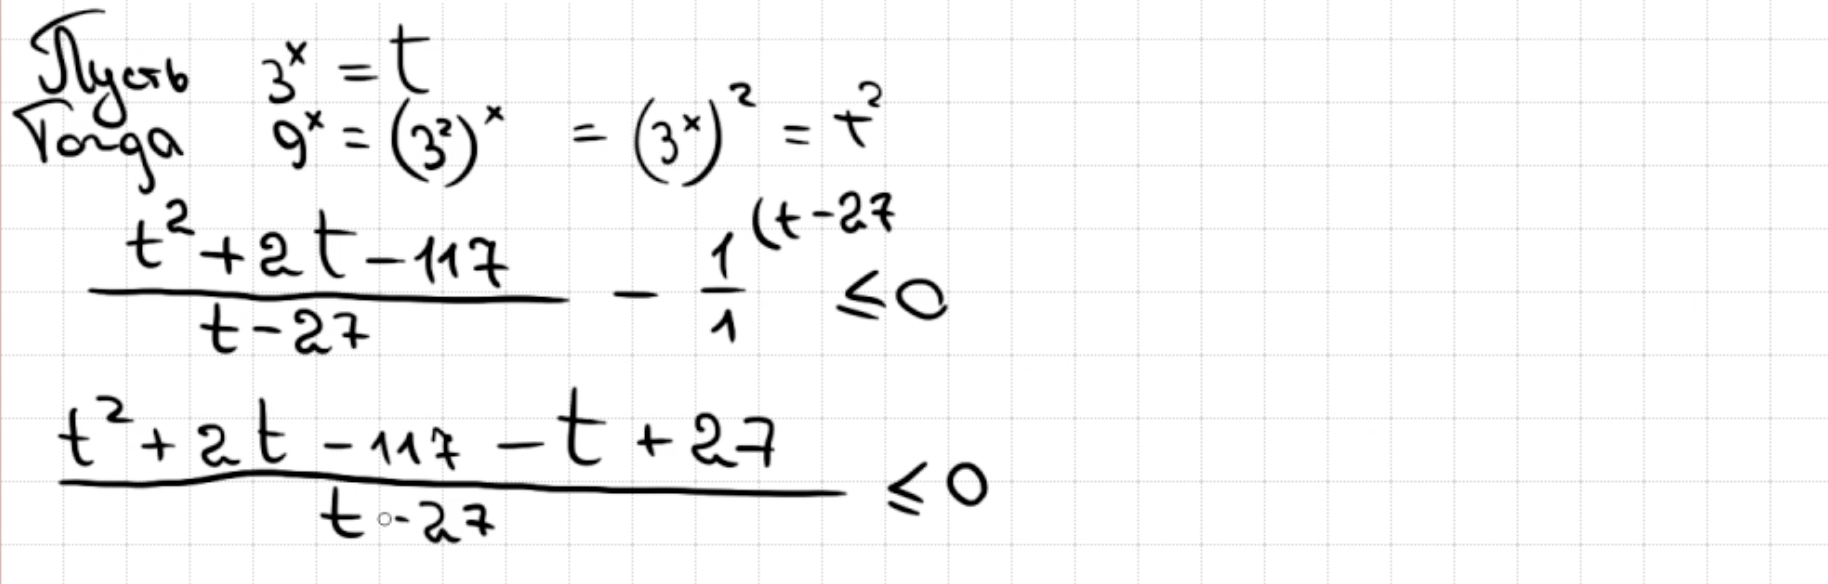 Пусть 3^x = t
Тогда 9^x = (3^2)^x = (3^x)^2 = t^2
(t^2 + 2t - 117)/(t - 27) - 1/1 (t - 27 ≤ 0
(t^2 + 2t - 117 - t + 27)/(t - 27) ≤ 0